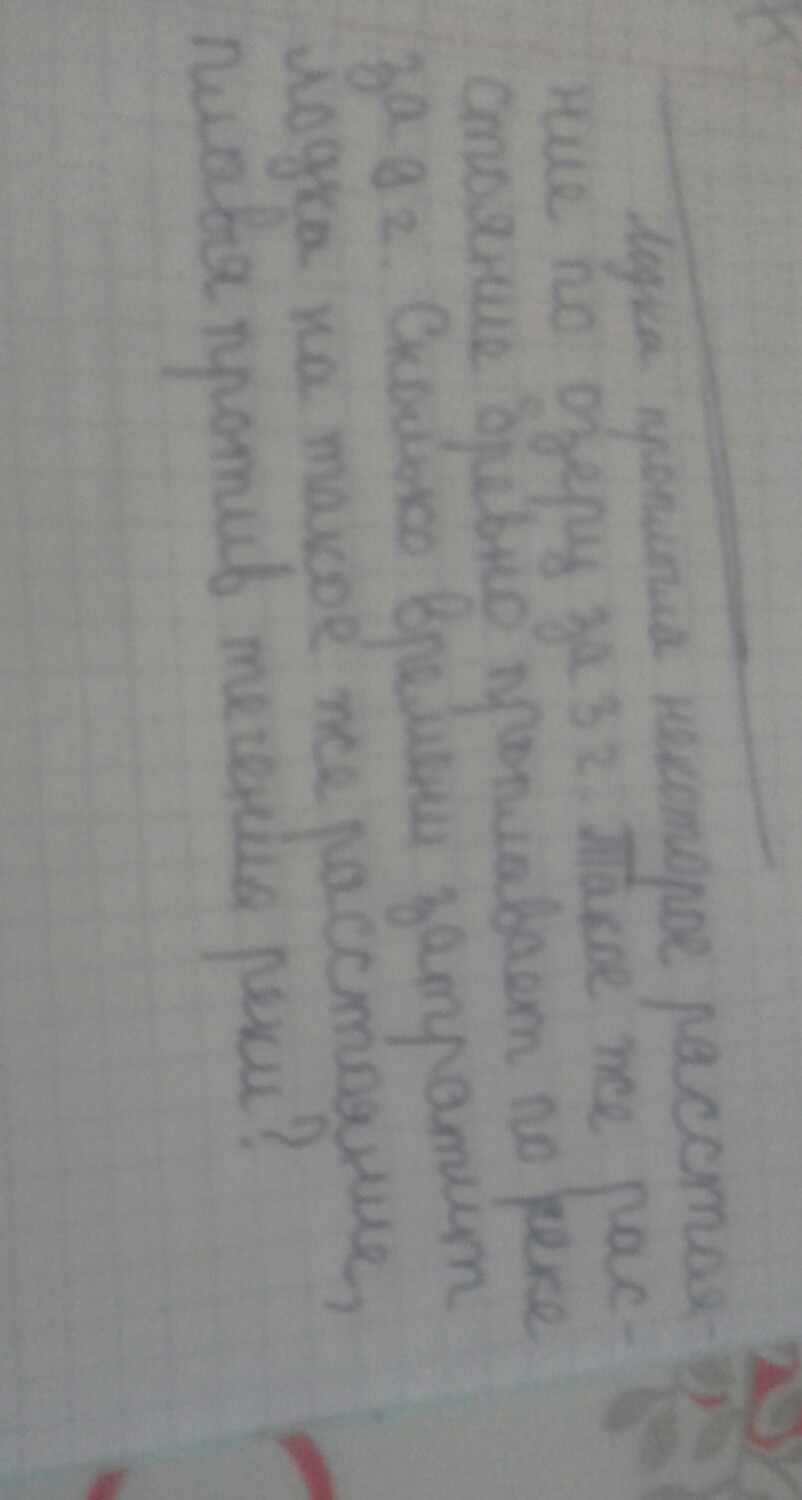 Лодка проплыла некоторое расстоя-
ние по озеру за 3 ч. Такое же рас-
стояние бревно проплывает по реке
за 8 ч. Сколько времени затратит
лодка на такое же расстояние,
плывя против течения реки?